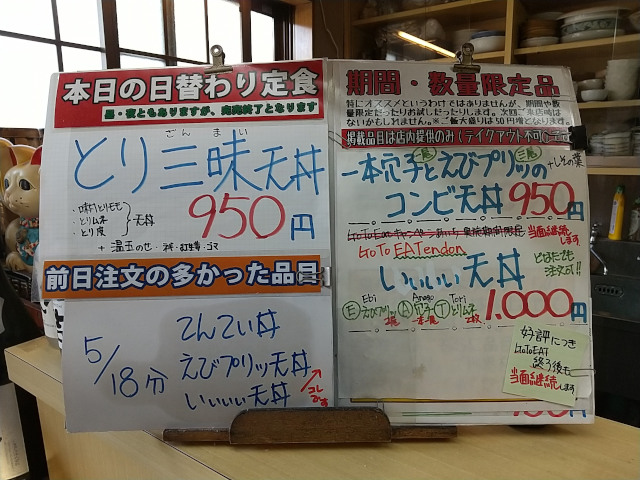 本日の日替わり定食
昼・夜ともありますが、完売終了となります
ざんまい
とり三昧天丼
・味付とりもも
・とりムネ
・とり皮
天丼
950円
+ 温玉のせ
前日注文の多かった品目
5/18分
てんてい丼
えびプリッ天丼
いいぃぃ天丼
コレです
期間・数量限定品
特にオススメというわけではありませんが、期間や数
量限定だったりお試しだったりします。次回ご来店時は
ないかもしれません。※ご飯大盛りは50円増となります。
掲載品目は店内提供のみ(テイクアウト不可
一本穴子とえびプリッの
コンビ天丼
+しその葉
950円
当面継続します
GoToEATendon
いいぃぃ天丼
どなたでも
注文可!!
Ebi
Anago
Tori
E えびプリッ 2尾
A 穴子
T とりムネ 2枚
1.000円
好評につき
GoToEAT
終了後も
当面継続します